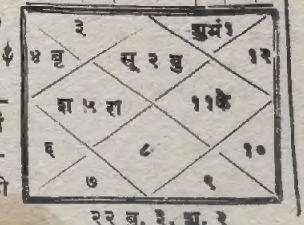 ३ शुमं१
४ बृ सू २ बु १२
श ५ रा ११के
६ ८ १०
७ ९
२२ ब. ३. श. २